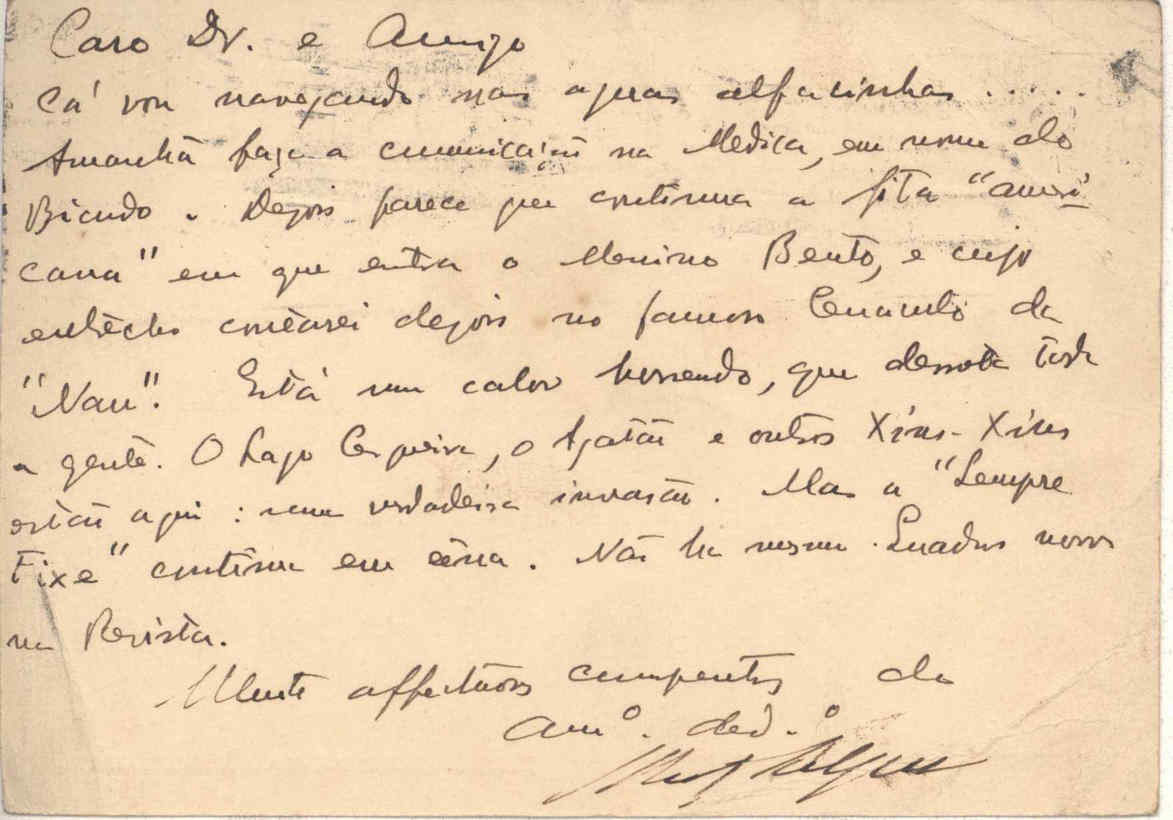 Caro Dr. e Amigo
Cá vou navegando nas aguas alfacinhas .....
Amanhã faço a comunicação na Medica, em nome do
Bicudo. Depois parece que continua a fita "ameri
cana" em que entra o Menino Bento, e cujo
entrecho contarei depois no famoso Cenaculo da
"Nau". Está um calor horrendo, que derrota toda
a gente. O Lago Cerqueira, o Agatão e outros Xins-Xins
estão aqui: uma verdadeira invasão. Mas a "Sempre
Fixe" continua em cêna. Não ha mesmo Quadros novos
na Revista.
Mente affectuosos cumpentos do
amº. dedº.